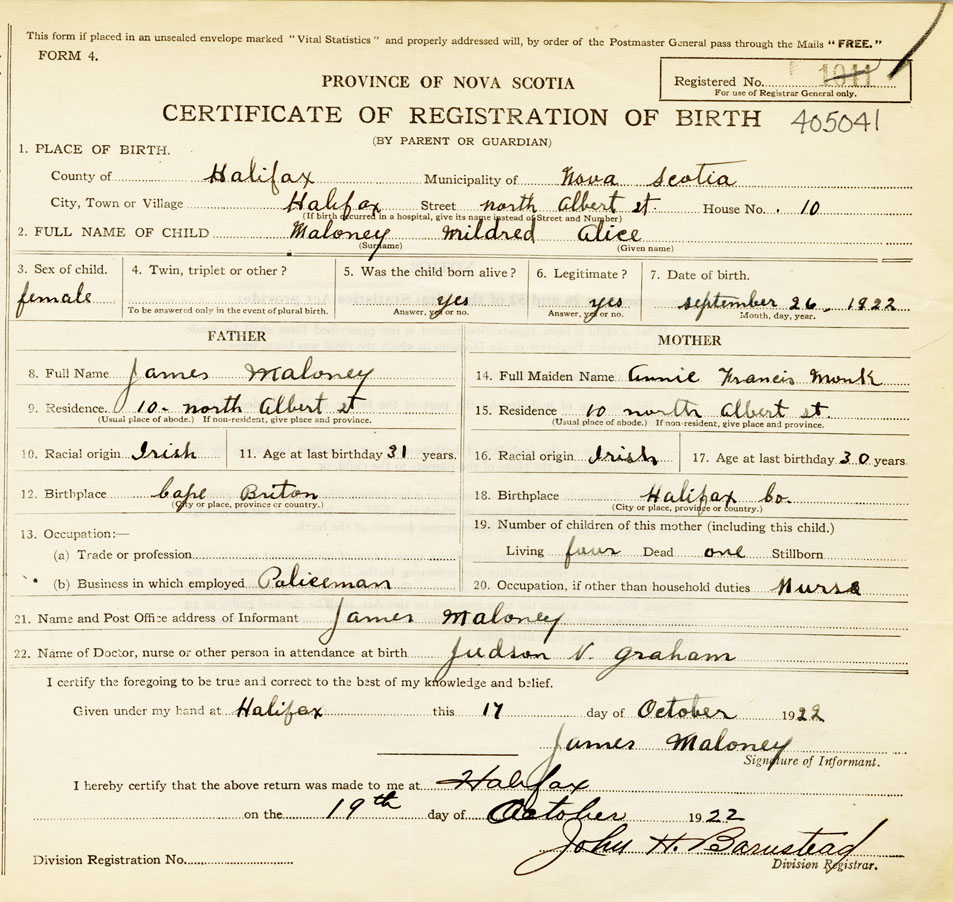 This form if placed in an unsealed envelope marked "Vital Statistics" and properly addressed will, by order of the Postmaster General pass through the Mails "FREE."
FORM 4.
PROVINCE OF NOVA SCOTIA
Registered No. 1041
For use of Registrar General only.
CERTIFICATE OF REGISTRATION OF BIRTH 405041
(BY PARENT OR GUARDIAN)
1. PLACE OF BIRTH.
County of Halifax Municipality of Nova Scotia
City, Town or Village Halifax Street north Albert st House No. 10
(If birth occurred in a hospital, give its name instead of Street and Number)
2. FULL NAME OF CHILD Maloney Mildred Alice
(Surname) (Given name)
3. Sex of child. 4. Twin, triplet or other? 5. Was the child born alive? 6. Legitimate? 7. Date of birth.
female yes yes september 26, 1922
To be answered only in the event of plural birth. Answer, yes or no. Answer, yes or no. Month, day, year.
FATHER MOTHER
8. Full Name James Maloney 14. Full Maiden Name Annie Francis Monk
9. Residence. 10- north Albert st 15. Residence 10 north Albert st.
(Usual place of abode.) If non-resident, give place and province. (Usual place of abode.) If non-resident, give place and province.
10. Racial origin Irish 11. Age at last birthday 31 years. 16. Racial origin Irish 17. Age at last birthday 30 years.
12. Birthplace Cape Briton 18. Birthplace Halifax Co.
(City or place, province or country.) (City or place, province or country.)
13. Occupation:— 19. Number of children of this mother (including this child.)
(a) Trade or profession Living four Dead one Stillborn
(b) Business in which employed Policeman 20. Occupation, if other than household duties Nurse
21. Name and Post Office address of Informant James Maloney
22. Name of Doctor, nurse or other person in attendance at birth Judson V. Graham
I certify the foregoing to be true and correct to the best of my knowledge and belief.
Given under my hand at Halifax this 17 day of October 1922
James Maloney
Signature of Informant.
I hereby certify that the above return was made to me at Halifax
on the 19th day of October 1922
John H. Barnstead
Division Registration No. Division Registrar.